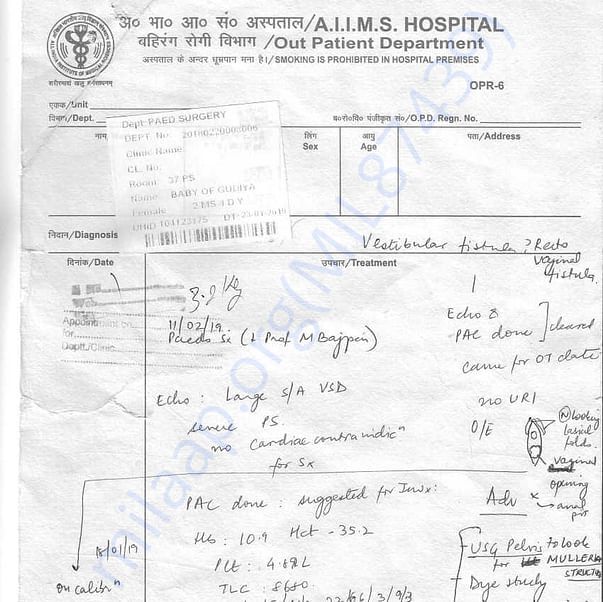 अ० भा० आ० सं० अस्पताल/A.I.I.M.S. HOSPITAL
बहिरंग रोगी विभाग /Out Patient Department
अस्पताल के अन्दर धूम्रपान मना है।/SMOKING IS PROHIBITED IN HOSPITAL PREMISES
OPR-6
एकक/Unit
विभाग/Dept.
ब०रो०वि० पंजीकृत सं०/O.P.D. Regn. No.
नाम
लिंग
Sex
आयु
Age
पता/Address
Dept-PAED SURGERY
DEPT. No:
Clinic Name
CL. No:
Room 37 PS
Name BABY OF GUDIYA
Female 2 MS 4 D Y
UHID 104123175 DT-23-01-2019
निदान/Diagnosis
Vestibular fistula ? Recto
vaginal
fistula.
दिनांक/Date
उपचार/Treatment
Appointment on
for
Deptt./Clinic
11/02/19.
Paeds Sx (t Prof M Bajpai)
Echo &
PAC done ] cleared
came for OT date
Echo : Large S/A VSD
severe PS.
no cardiac contraindicn
for Sx
no URI
O/E
(N) looking
labial
folds.
vaginal
opening
anal
pit
PAC done : suggested for Invx:
Adv
18/01/19
Hb : 10.9 Hct - 35.2
PLt : 4.
TLC : 8680
USG Pelvis to look
for MULLERIAN
STRUCTURE
Dye study
milaap.org(MIL87439)